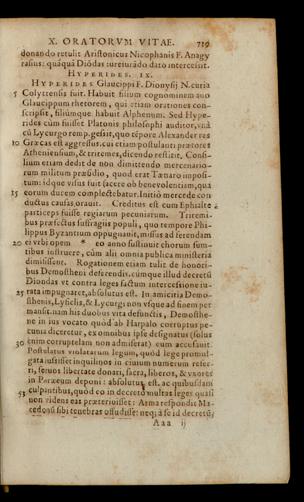 X. ORATORVM VITAE. 719
donando retulit Aristonicus Nicophanis F. Anagy
rasius: quāquā Diōdas iureiurādo dato intercessit.
HYPERIDES. IX.
HYPERIDES Glaucippi F. Dionysij N. curia
5 Colyttensis fuit. Habuit filium cognominem auo
Glaucippum rhetorem, qui etiam orationes con-
scripsit, filiúmque habuit Alphenum. Sed Hype-
rides cùm fuisset Platonis philosophi auditor, vnà
cū Lycurgo remp. gessit, quo tēpore Alexander res
10 Græcas est aggressus. cui etiam postulanti prætores
Atheniensium, & triremes, dicendo restitit. Consi-
lium etiam dedit de non dimittendo mercenario-
rum militum præsidio, quod erat Tænaro imposi-
tum: idque visus fuit facere ob beneuolentiam, qua
15 eorum ducem complectebatur. Initiò mercede con
ductus causas orauit. Creditus est cum Ephialte
particeps fuisse regiarum pecuniarum. Triremi-
bus præfectus suffragiis populi, quo tempore Phi-
lippus Byzantium oppugnauit, missus ad ferendam
20 ei vrbi opem * eo anno sustinuit chorum sum-
tibus instruere, cùm alii omnia publica ministeria
dimisissent. Rogationem etiam tulit de honori-
bus Demostheni deferendis. cúmque illud decretū
Diondas vt contra leges factum intercessione iu-
25 rata impugnaret, absolutus est. In amicitia Demo-
sthenis, Lysiclis, & Lycurgi non vsque ad finem per
mansit. nam his duobus vita defunctis, Demosthe-
ne in ius vocato quòd ab Harpalo corruptus pe-
cunia diceretur, ex omnibus ipse designatus (solus
30 enim corruptelam non admiserat) eum accusauit.
Postulatus violatarum legum, quòd lege promul-
gata iussisset inquilinos in ciuium numerum refer-
ri, seruos libertate donari, sacra, liberos, & vxores
in Piræeum deponi: absolutus est. ac quibusdam
35 culpantibus, quòd eo in decreto multas leges quasi
non videns eas præteriuisset: Arma respondit Ma-
cedonū sibi tenebras offudisse: neq; à se id decretū,
Aaa ij